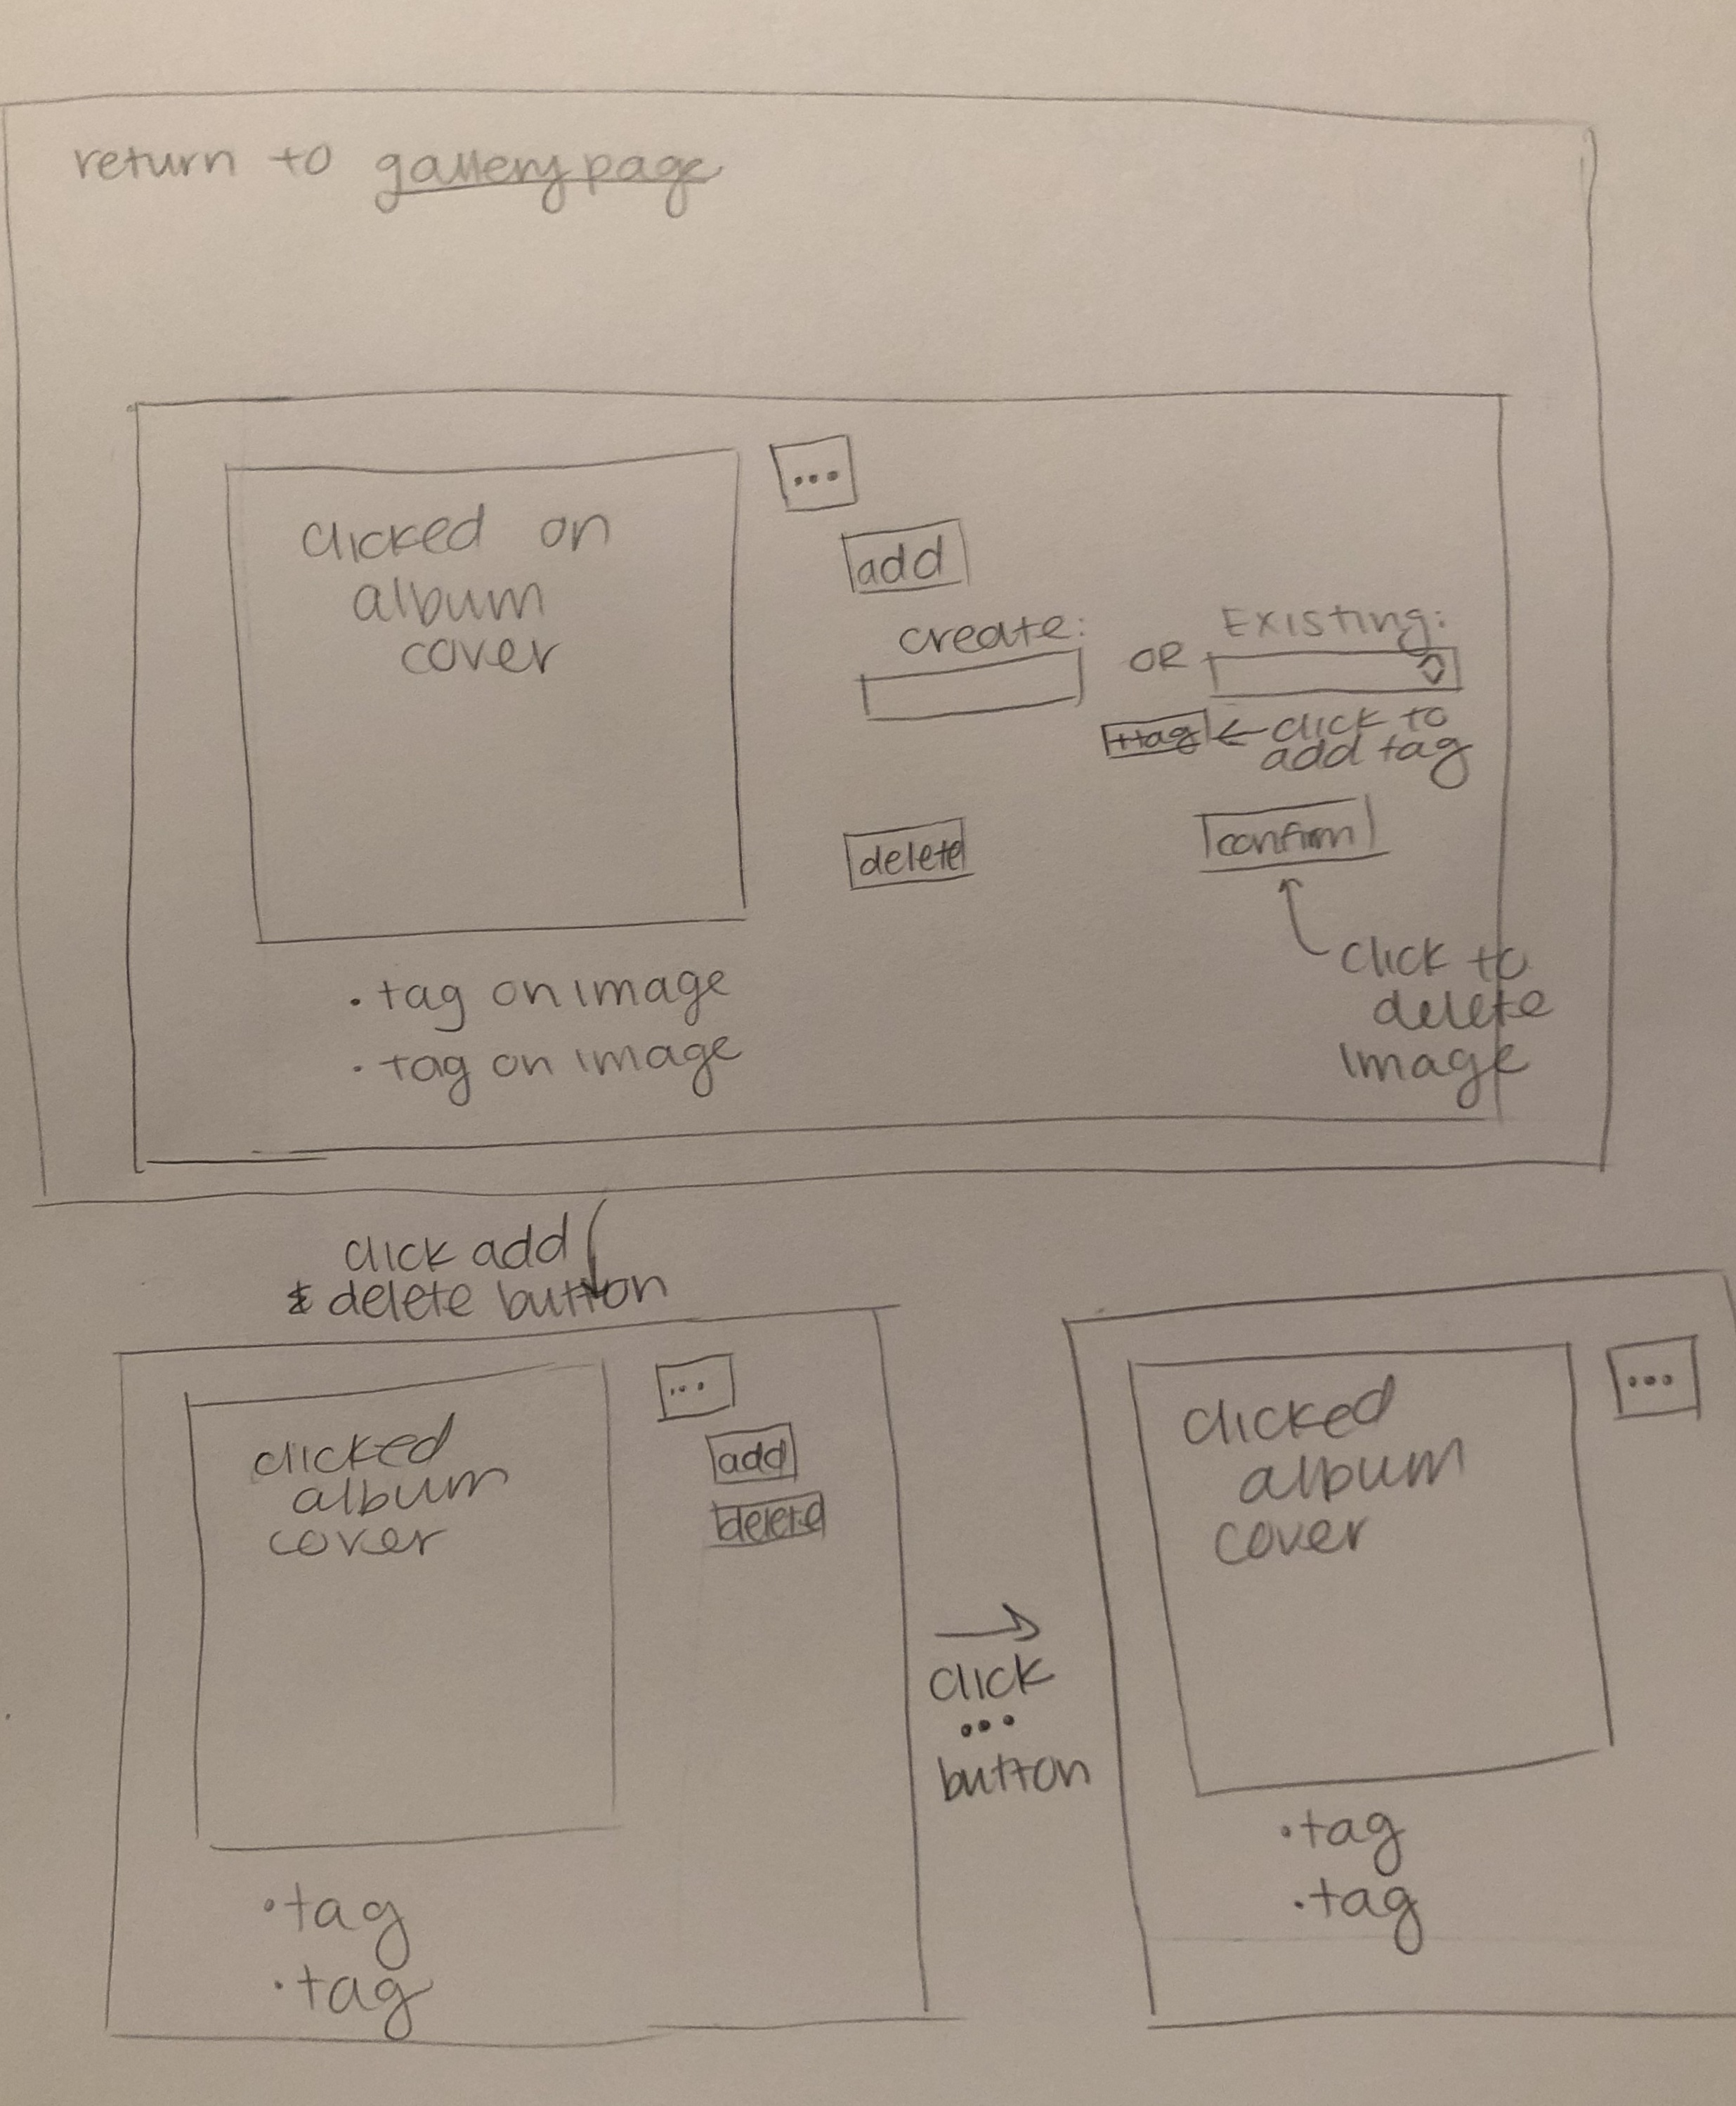 return to gallery page
...
clicked on
album
cover
add
create:
OR
Existing:
+tag ← click to
add tag
delete
confirm
click to
delete
image
• tag on image
• tag on image
click add
& delete button
clicked
album
cover
...
add
delete
• tag
• tag
→
click
...
button
clicked
album
cover
...
• tag
• tag